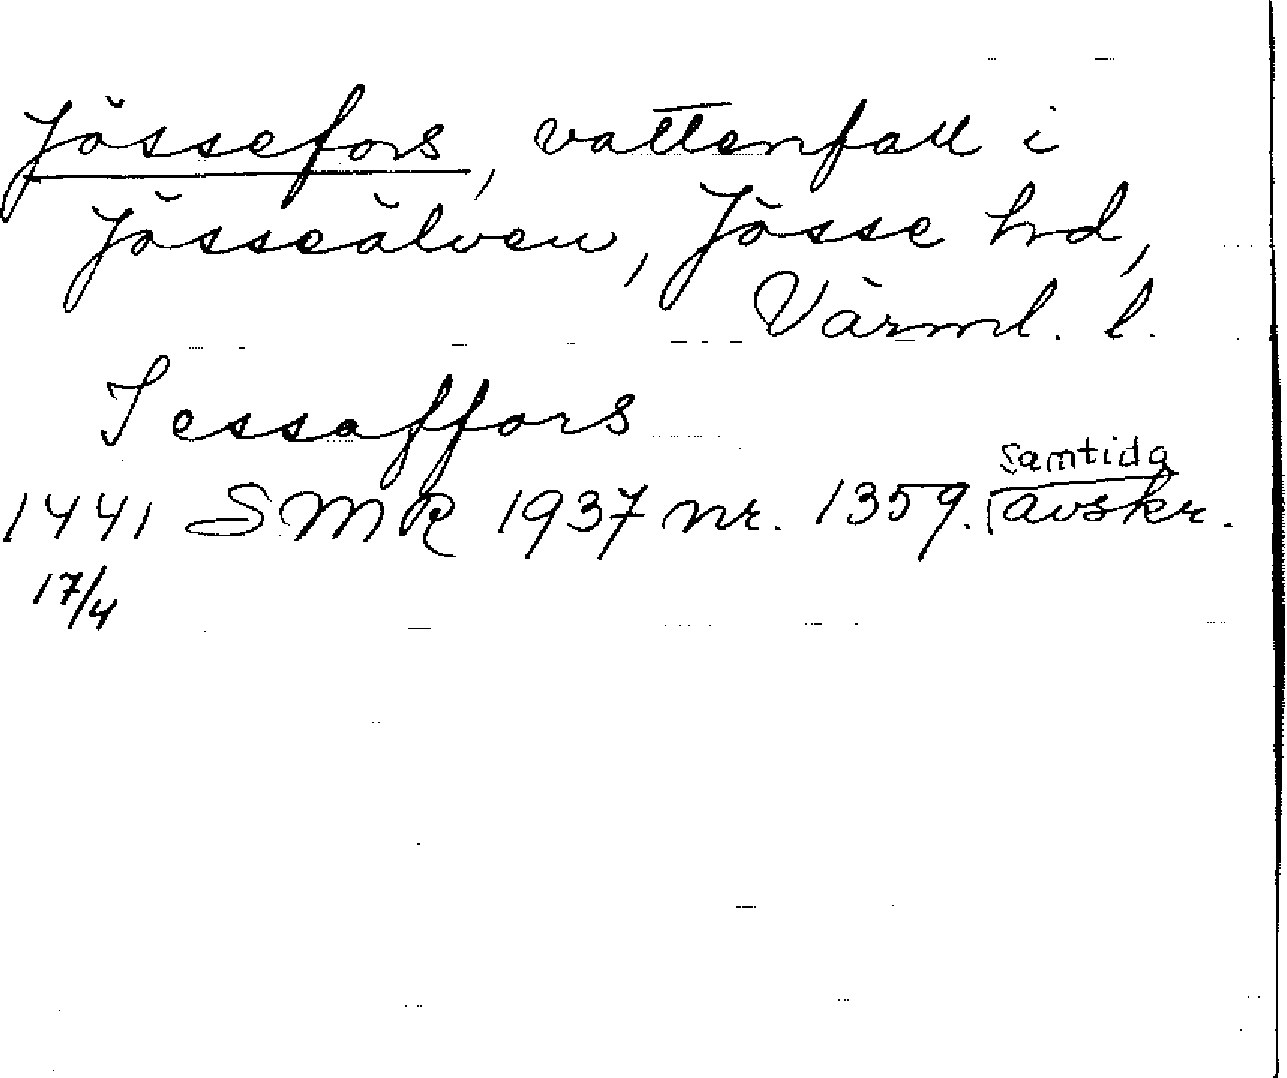 Jössefors, vattenfall i
Jösseälven, Jösse hd,
Värml. l.
Jessaffors
1441 SMR 1937 nr. 1359. samtida avskr.
17/4